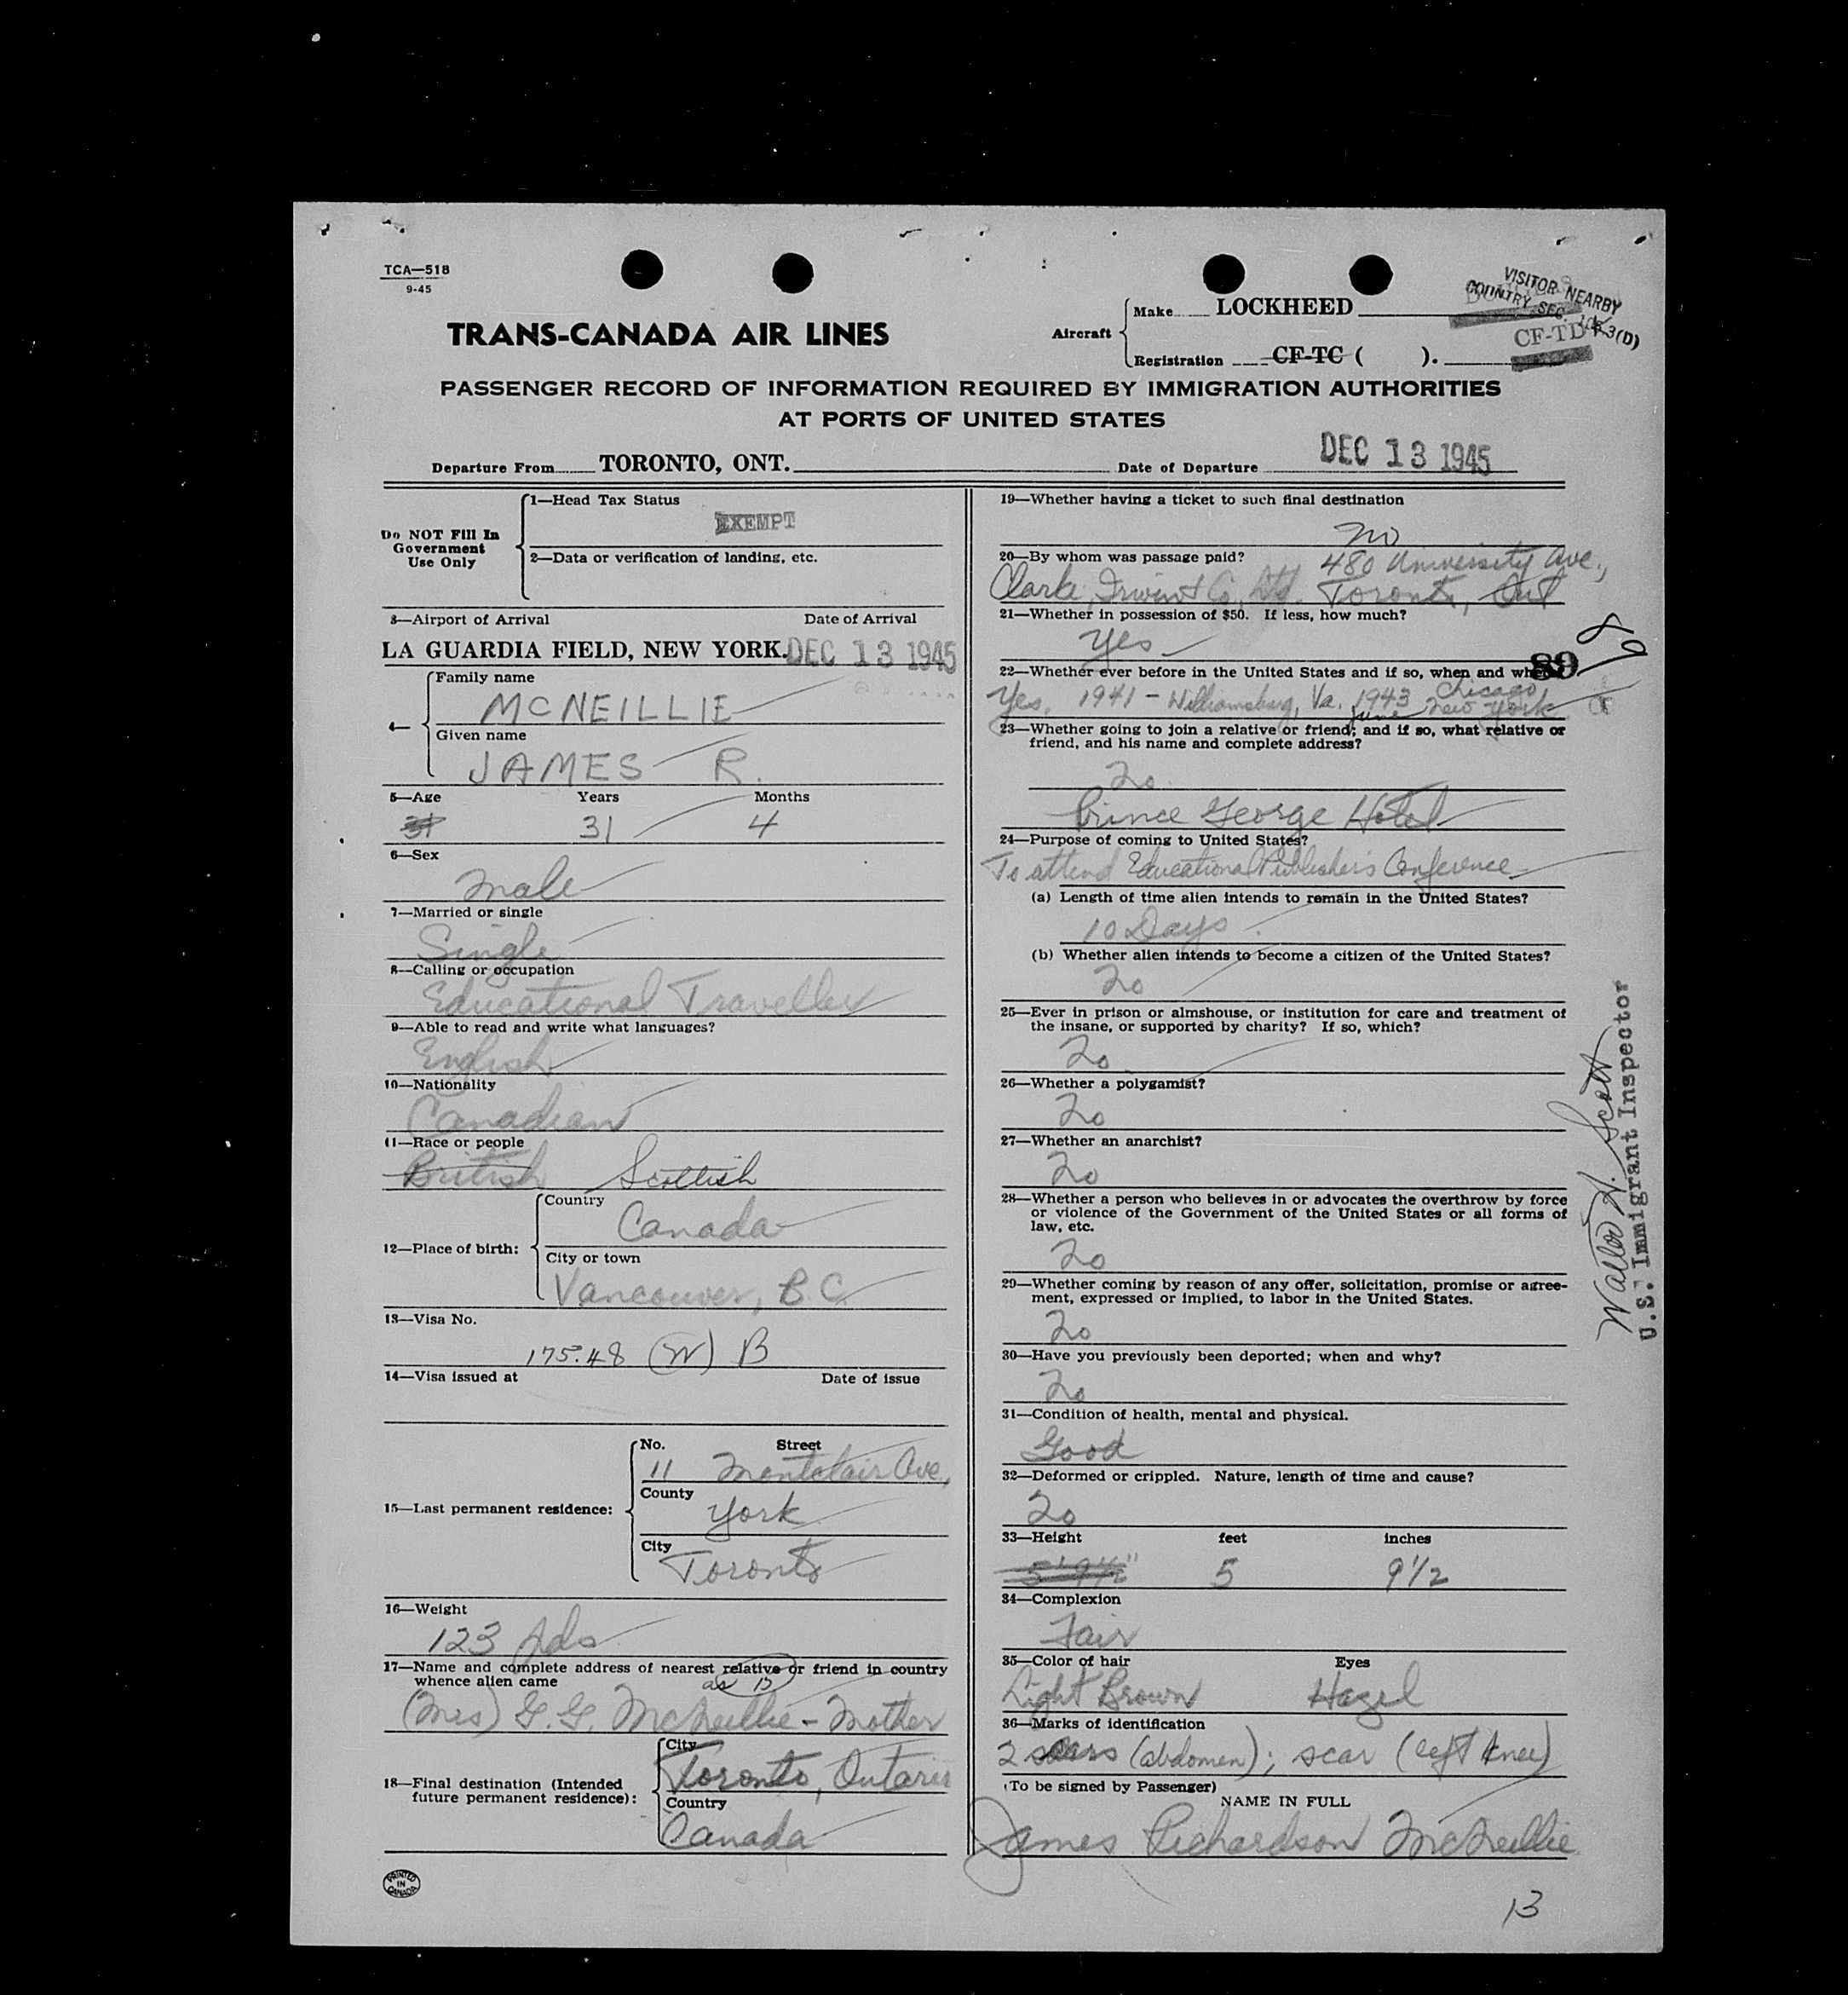 TCA—518
9-45
TRANS-CANADA AIR LINES
Aircraft
Make LOCKHEED
Registration CF-TC ( ).
CF-TD
VISITOR NEARBY
COUNTRY SEC. 3(D)
PASSENGER RECORD OF INFORMATION REQUIRED BY IMMIGRATION AUTHORITIES
AT PORTS OF UNITED STATES
Departure From TORONTO, ONT. Date of Departure DEC 13 1945
Do NOT Fill In
Government
Use Only
1—Head Tax Status
EXEMPT
2—Data or verification of landing, etc.
3—Airport of Arrival Date of Arrival
LA GUARDIA FIELD, NEW YORK. DEC 13 1945
4—
Family name
MCNEILLIE
Given name
JAMES R.
5—Age Years Months
31 31 4
6—Sex
Male
7—Married or single
Single
8—Calling or occupation
Educational Traveller
9—Able to read and write what languages?
English
10—Nationality
Canadian
11—Race or people
British Scottish
12—Place of birth:
Country
Canada
City or town
Vancouver, B.C.
13—Visa No.
175.48 (W) B
14—Visa issued at Date of issue
15—Last permanent residence:
No. Street
11 Montclair Ave,
County
York
City
Toronto
16—Weight
123 lbs
17—Name and complete address of nearest relative or friend in country
whence alien came
as 15
(Mrs) G.G. McNeillie - Mother
18—Final destination (Intended
future permanent residence):
City
Toronto, Ontario
Country
Canada
PRINTED
IN
CANADA
19—Whether having a ticket to such final destination
No
20—By whom was passage paid? 480 University Ave.,
Clarke, Irwin & Co. Ltd. Toronto, Ont
21—Whether in possession of $50. If less, how much?
Yes
89
22—Whether ever before in the United States and if so, when and where
Yes. 1941 - Williamsburg, Va. 1943 Chicago,
June New York
23—Whether going to join a relative or friend; and if so, what relative or
friend, and his name and complete address?
No
Prince George Hotel
24—Purpose of coming to United States?
To attend Educational Publishers Conference
(a) Length of time alien intends to remain in the United States?
10 Days
(b) Whether alien intends to become a citizen of the United States?
No
25—Ever in prison or almshouse, or institution for care and treatment of
the insane, or supported by charity? If so, which?
No
26—Whether a polygamist?
No
27—Whether an anarchist?
No
28—Whether a person who believes in or advocates the overthrow by force
or violence of the Government of the United States or all forms of
law, etc.
No
29—Whether coming by reason of any offer, solicitation, promise or agree-
ment, expressed or implied, to labor in the United States.
No
30—Have you previously been deported; when and why?
No
31—Condition of health, mental and physical.
Good
32—Deformed or crippled. Nature, length of time and cause?
No
33—Height feet inches
5' 9½" 5 9 1/2
34—Complexion
Fair
35—Color of hair Eyes
Light Brown Hazel
36—Marks of identification
2 scars (abdomen); scar (left knee)
(To be signed by Passenger)
NAME IN FULL
James Richardson McNeillie
13
Walter H. Scott
U.S. Immigrant Inspector